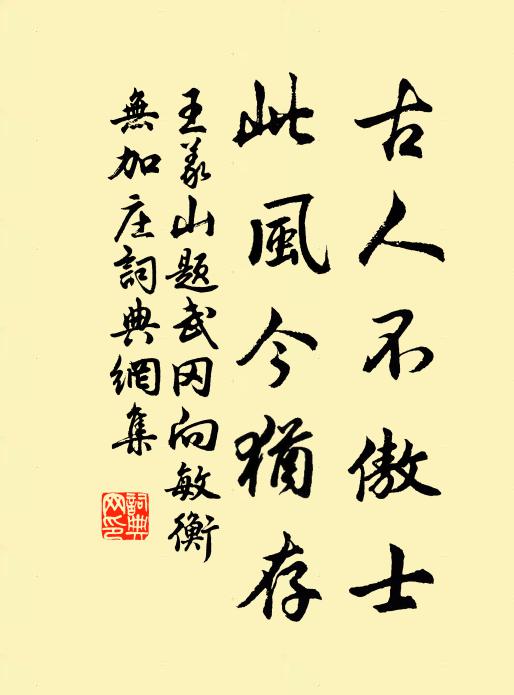 古人不傲士
此風今猶存
王義山題武冈向敏衡
無加庄詞典網集
詞典网印